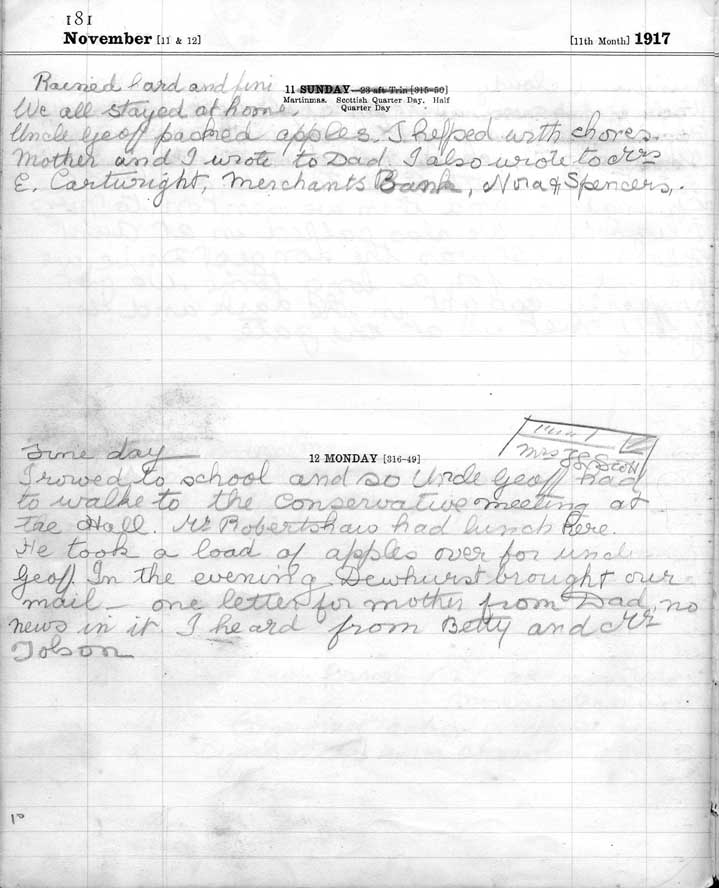 181
November [11 & 12] [11th Month] 1917
11 SUNDAY—23 aft Trin [315-50]
Martinmas. Scottish Quarter Day. Half
Quarter Day
Rained hard and
We all stayed at home.
Uncle Geoff packed apples. I helped with chores.
Mother and I wrote to Dad. I also wrote to Mrs
E. Cartwright, Merchants Bank, Nora & Spencers,.
12 MONDAY [316-49]
day
Mrs Scott
I rowed to school and so Uncle Geoff had
to walke to the Conservative meeting at
the Hall. Mr Robertshaw had lunch here.
He took a load of apples over for uncle
Geoff. In the evening Dewhurst brought our
mail - one letter for mother from Dad, no
news in it I heard from Betty and Mr
Tolson
10